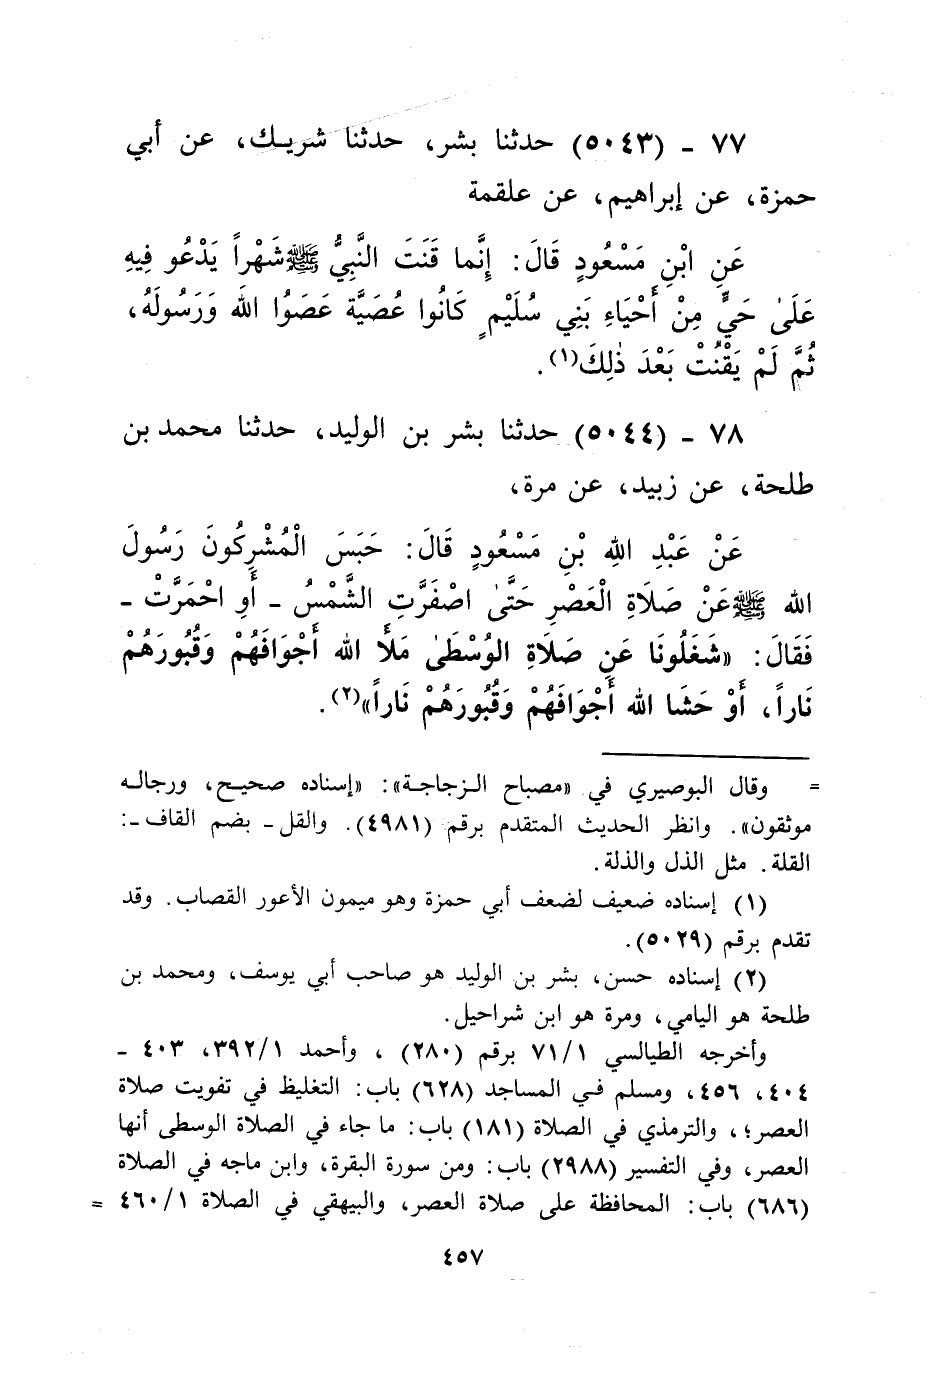 ٧٧ ـ (٥٠٤٣) حدثنا بشر، حدثنا شريك، عن أبي
حمزة، عن إبراهيم، عن علقمة
عَنِ ابْنِ مَسْعُودٍ قَالَ: إِنَّما قَنَتَ النَّبِيُّ ﷺ شَهْراً يَدْعُو فِيهِ
عَلَىٰ حَيٍّ مِنْ أَحْيَاءِ بَنِي سُلَيْمٍ كَانُوا عُصَيَّة عَصَوُا اللهَ وَرَسُولَهُ،
ثُمَّ لَمْ يَقْنُتْ بَعْدَ ذٰلِكَ(١).
٧٨ ـ (٥٠٤٤) حدثنا بشر بن الوليد، حدثنا محمد بن
طلحة، عن زبيد، عن مرة،
عَنْ عَبْدِ اللهِ بْنِ مَسْعُودٍ قَالَ: حَبَسَ الْمُشْرِكُونَ رَسُولَ
الله ﷺ عَنْ صَلَاةِ الْعَصْرِ حَتَّىٰ اصْفَرَّتِ الشَّمْسُ ـ أَوِ احْمَرَّتْ ـ
فَقَالَ: «شَغَلُونَا عَنِ صَلَاةِ الوُسْطَىٰ مَلأَ الله أَجْوَافَهُمْ وَقُبُورَهُمْ
نَاراً، أَوْ حَشَا الله أَجْوَافَهُمْ وَقُبُورَهُمْ نَاراً»(٢).
= وقال البوصيري في «مصباح الزجاجة»: «إسناده صحيح، ورجاله
موثقون». وانظر الحديث المتقدم برقم (٤٩٨١). والقل ـ بضم القاف ـ:
القلة. مثل الذل والذلة.
(١) إسناده ضعيف لضعف أبي حمزة وهو ميمون الأعور القصاب. وقد
تقدم برقم (٥٠٢٩).
(٢) إسناده حسن، بشر بن الوليد هو صاحب أبي يوسف، ومحمد بن
طلحة هو اليامي، ومرة هو ابن شراحيل.
وأخرجه الطيالسي ٧١/١ برقم (٢٨٠) ، وأحمد ٣٩٢/١، ٤٠٣ ـ
٤٠٤، ٤٥٦، ومسلم في المساجد (٦٢٨) باب: التغليظ في تفويت صلاة
العصر؛، والترمذي في الصلاة (١٨١) باب: ما جاء في الصلاة الوسطى أنها
العصر، وفي التفسير (٢٩٨٨) باب: ومن سورة البقرة، وابن ماجه في الصلاة
(٦٨٦) باب: المحافظة على صلاة العصر، والبيهقي في الصلاة ٤٦٠/١ =
٤٥٧